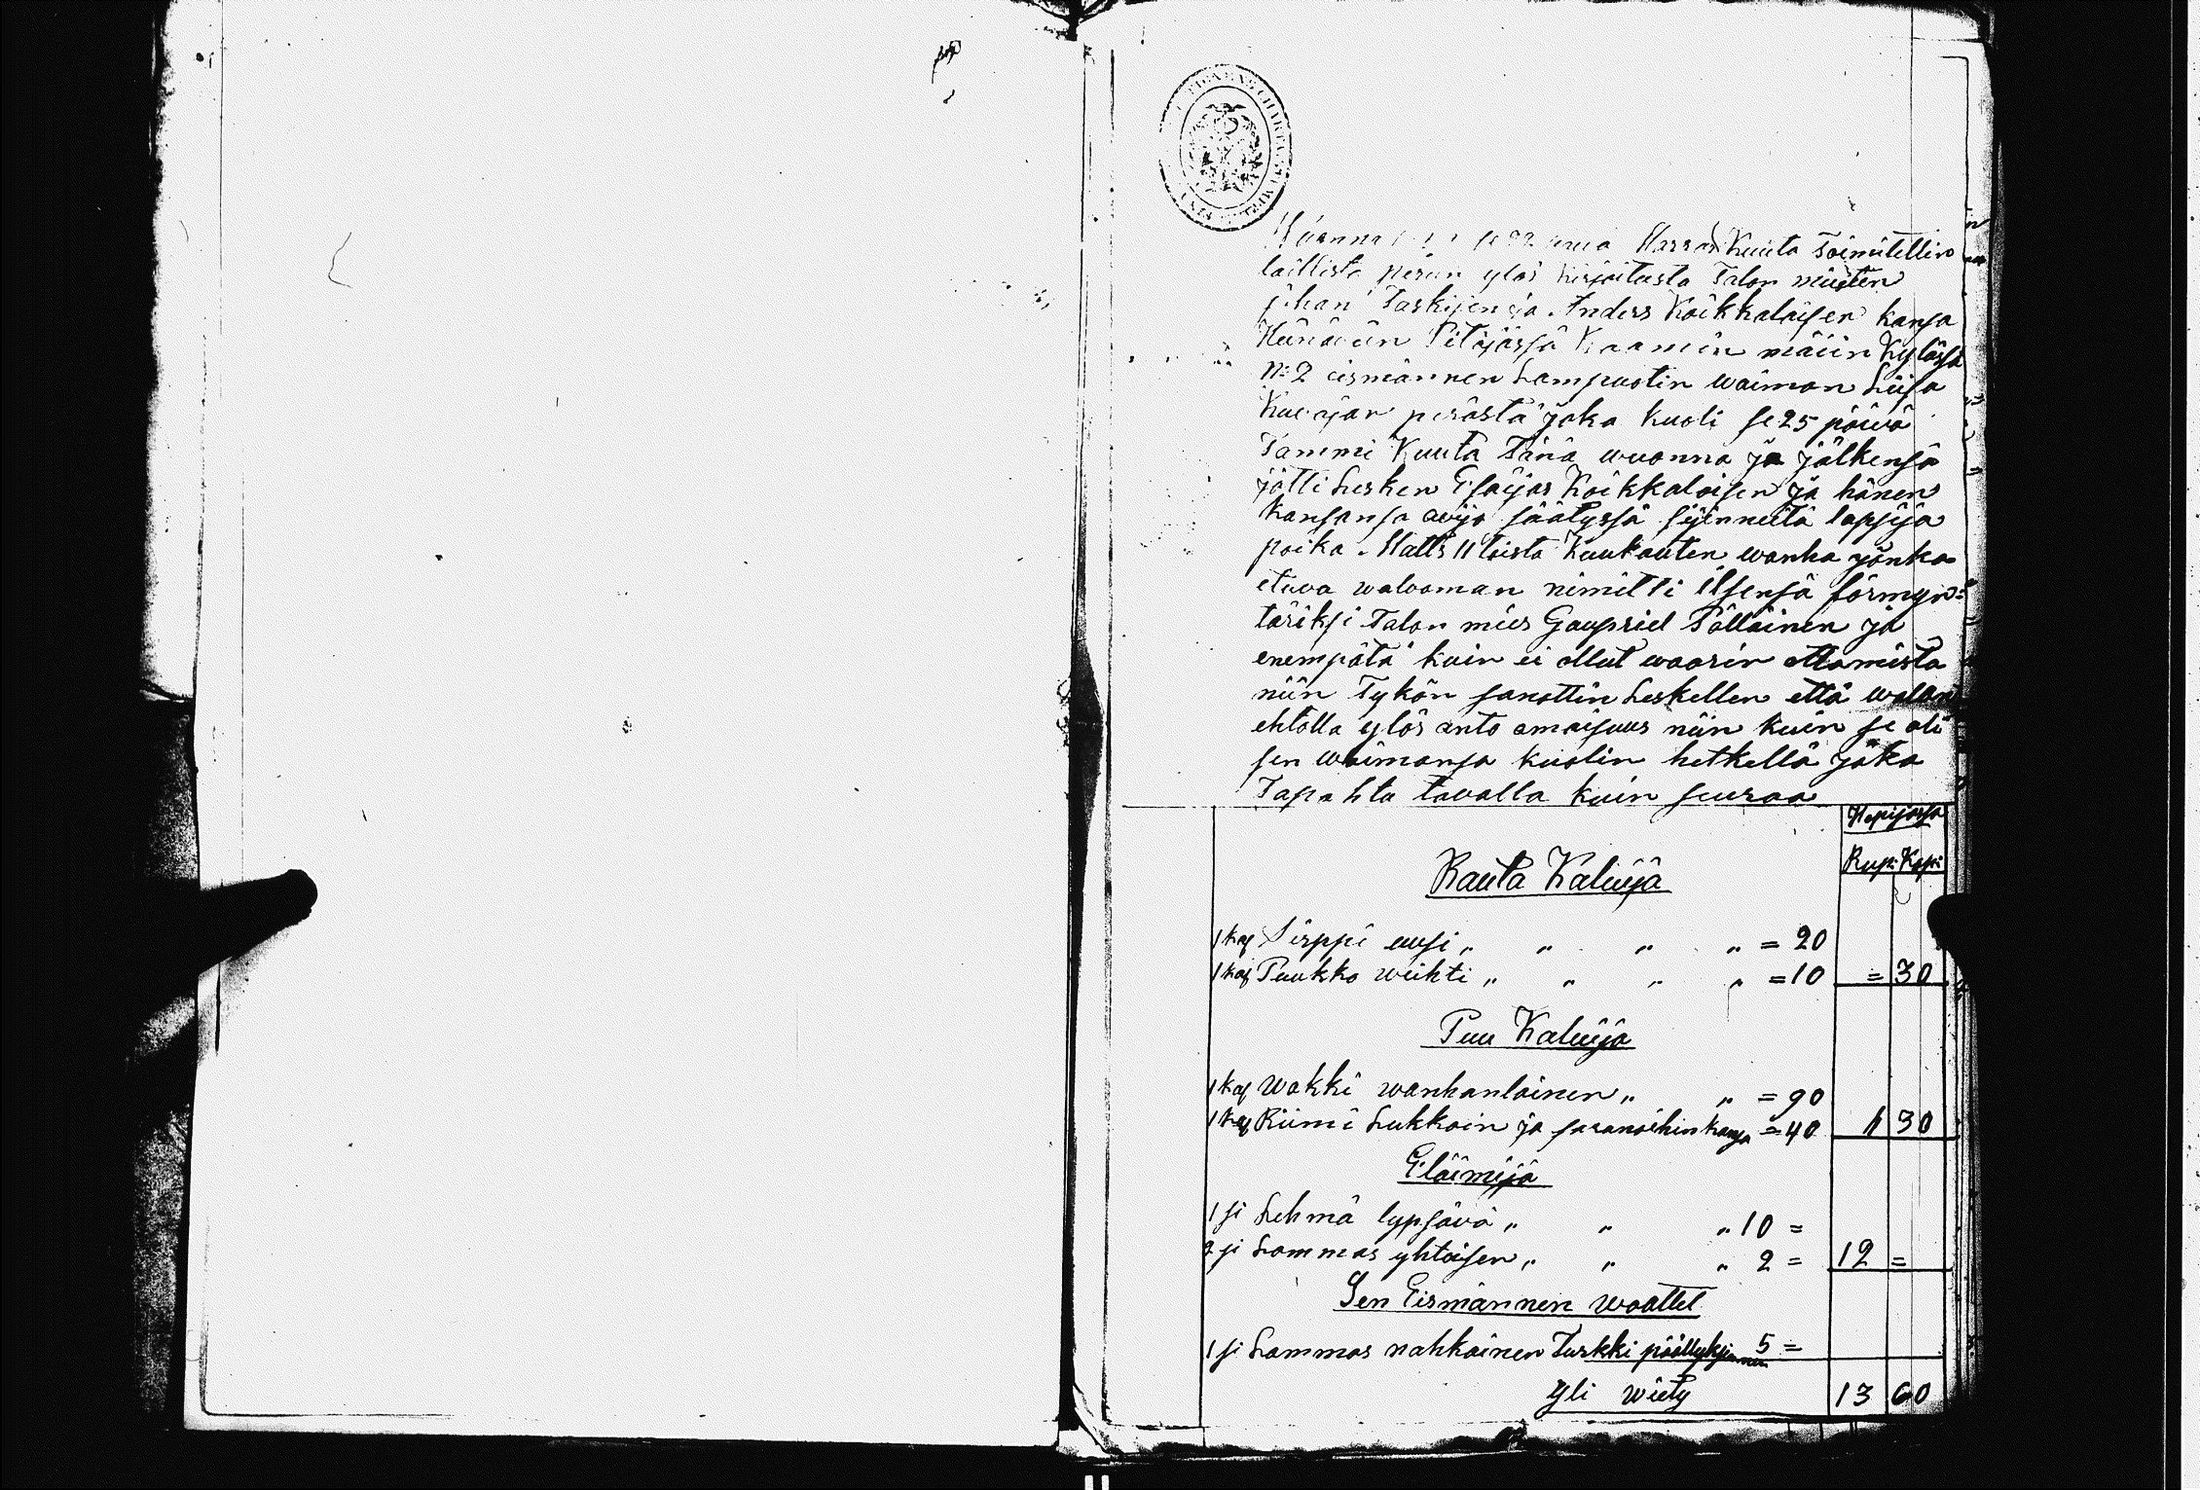 se 22 Marras Kuuta Toimitettin
laillista perun ylös kirjoitusta Talon miesten
Juhan Taskisen ja Anders Koikkalaisen kansa
Pitäjässä mäiin Kylässä
No 2 eismännen Lampuotin waiman Liisa
perästä joka kuoli se 25 päiwä
Tammi Kuuta Tänä wuonna ja jälkensä
jätti Lesken Esaijas Koikkalaisen ja hänen
kansansa awijo säätyssä sijinneitä lapsija
poika Matts 11 toista kuukauten wanha jonka
etuva walvoman nimitti itsensä förmyn=
täriksi Talon mies Gaupriel Pöllöinen ja
enempätä kuin ei ollut waarin ottamista
niin Tykön sanottin Leskellen että walan
ehtolla ylös anto omaisuus niin kuin se oli
sen waimonsa kuolin hetkellä joka
Tapahtu tavalla kuin seuraa
Hopijassa
Rup: Kop:
Rauta Kaluija
1 kap Sirppi uusi " " " " = 20
1 kap Puukko weihti " " " " = 10 = 30
Puu Kaluija
1 kap Wakki wanhanlainen " " = 90
1 kap Riimi Lukkoin ja saranoihin kansa = 40 1 30
Eläimijä
1 si Lehmä lypsävä " " " 10 =
2 si Lammas yhtäisen " " " 2 = 12 =
Sen Eismännen waattet
1 si Lammas nahkainen Turkki päällyksinnen 5 =
Yli wiety 13 60